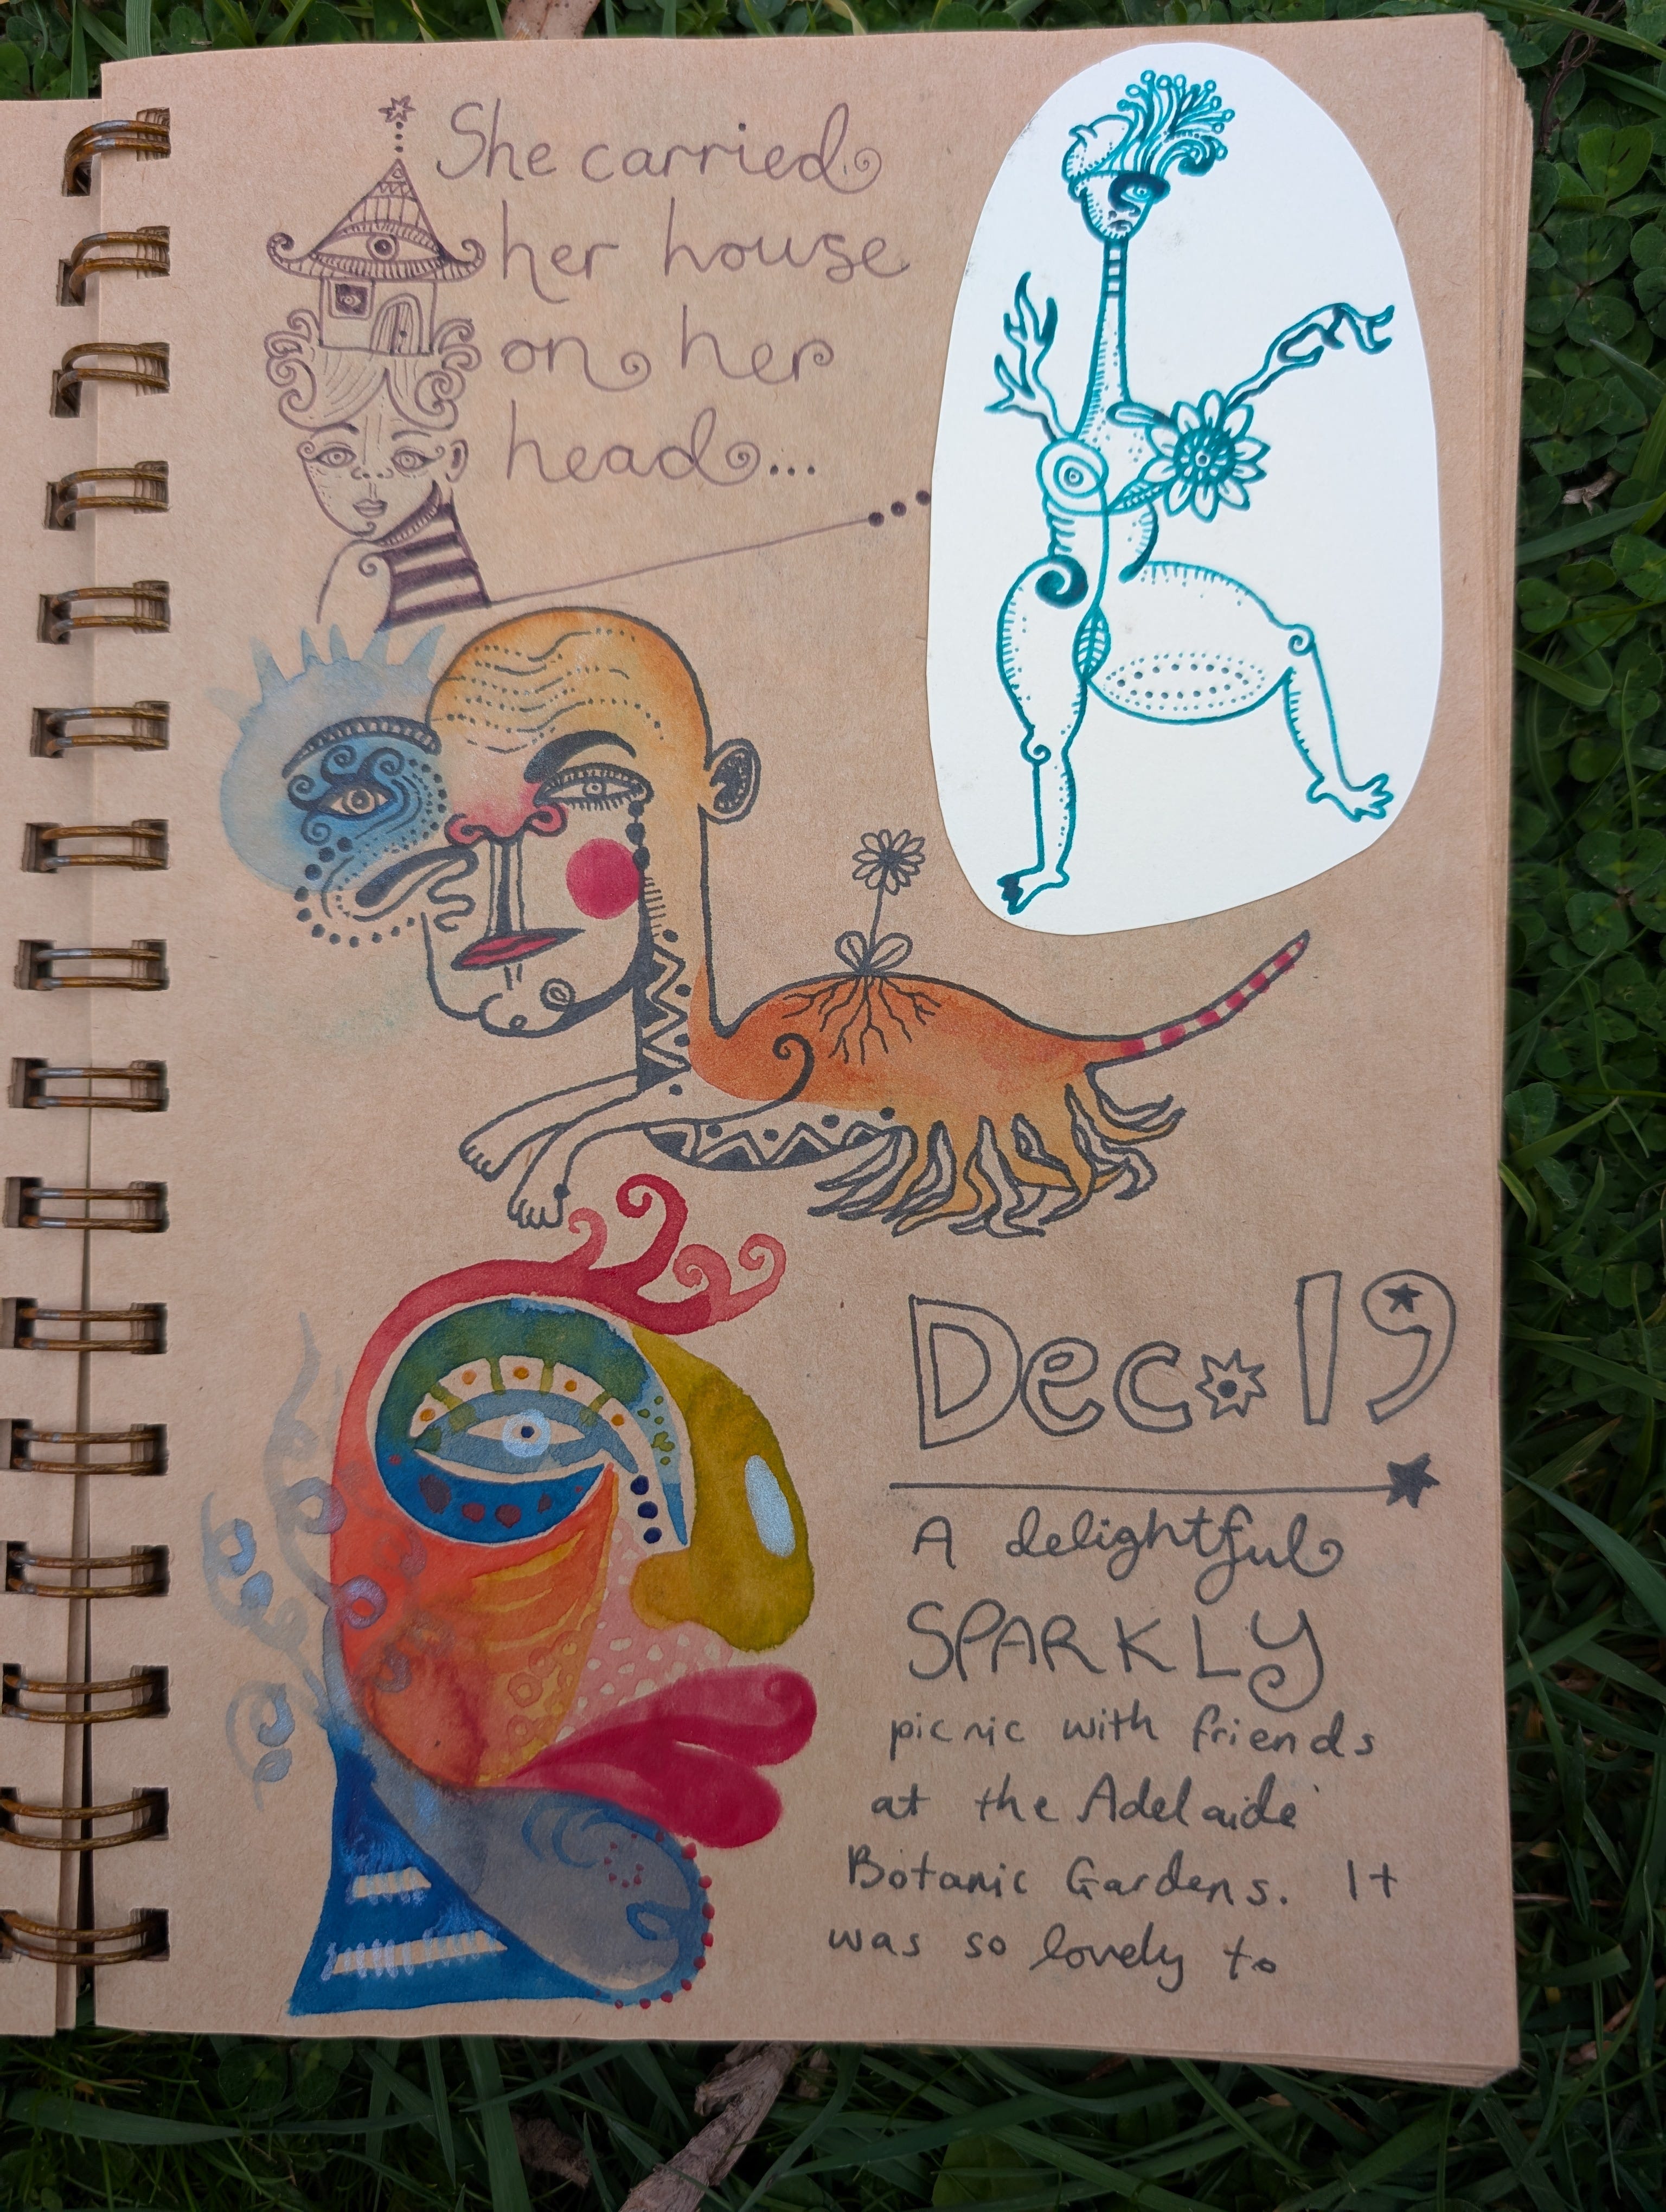 She carried
her house
on her
head...
Dec. 19
A delightful
SPARKLY
picnic with friends
at the Adelaide
Botanic Gardens. It
was so lovely to